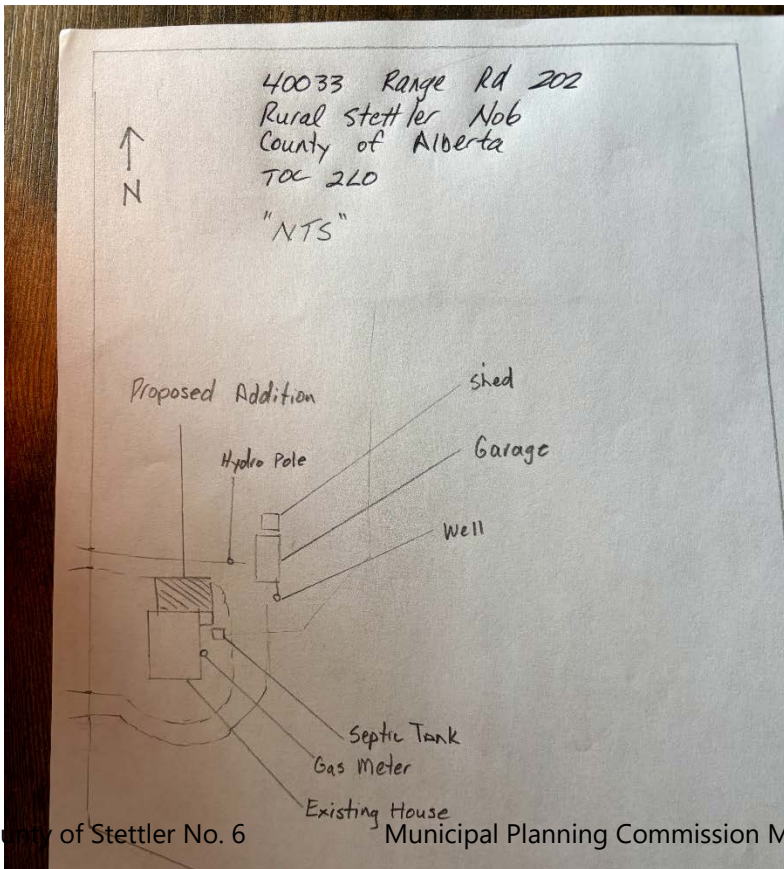 40033 Range Rd 202
Rural Stettler No6
County of Alberta
TOC 2L0
N
"NTS"
Proposed Addition
Hydro Pole
Shed
Garage
Well
Septic Tank
Gas Meter
Existing House
of Stettler No. 6
Municipal Planning Commission M